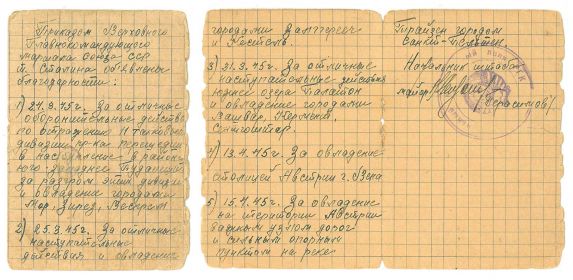 Приказом Верховного
Главнокомандующего
маршала Союза ССР
т. Сталина объявлены
благодарности:
1) 24.3.45г. За отличные
оборонительные действия
по отражению 11 танковых
дивизий пр-ка перешедш
в наступление в районе
юго-западнее Будапешта
за разгром этих дивизий
и овладение городами
Мор, Зирез, Веспрем.
2) 25.3.45г. За отличные
наступательные
действия и овладение
городами Залггресе
и Кестель.
3) 31.3.45г. За отличные
наступательные действия
южнее озера Балатон
и овладение городами
Вашвар, Кермент,
Сентготтар.
4) 13.4.45г. За овладение
столицей Австрии г. Вена
5) 15.4.45г. За овладение
на территории Австрии
важным узлом дорог
и сильным опорным
пунктом на реке
Трайзен городом
Санкт-Пельтен.
Начальник штаба
майор
/Герасимов/